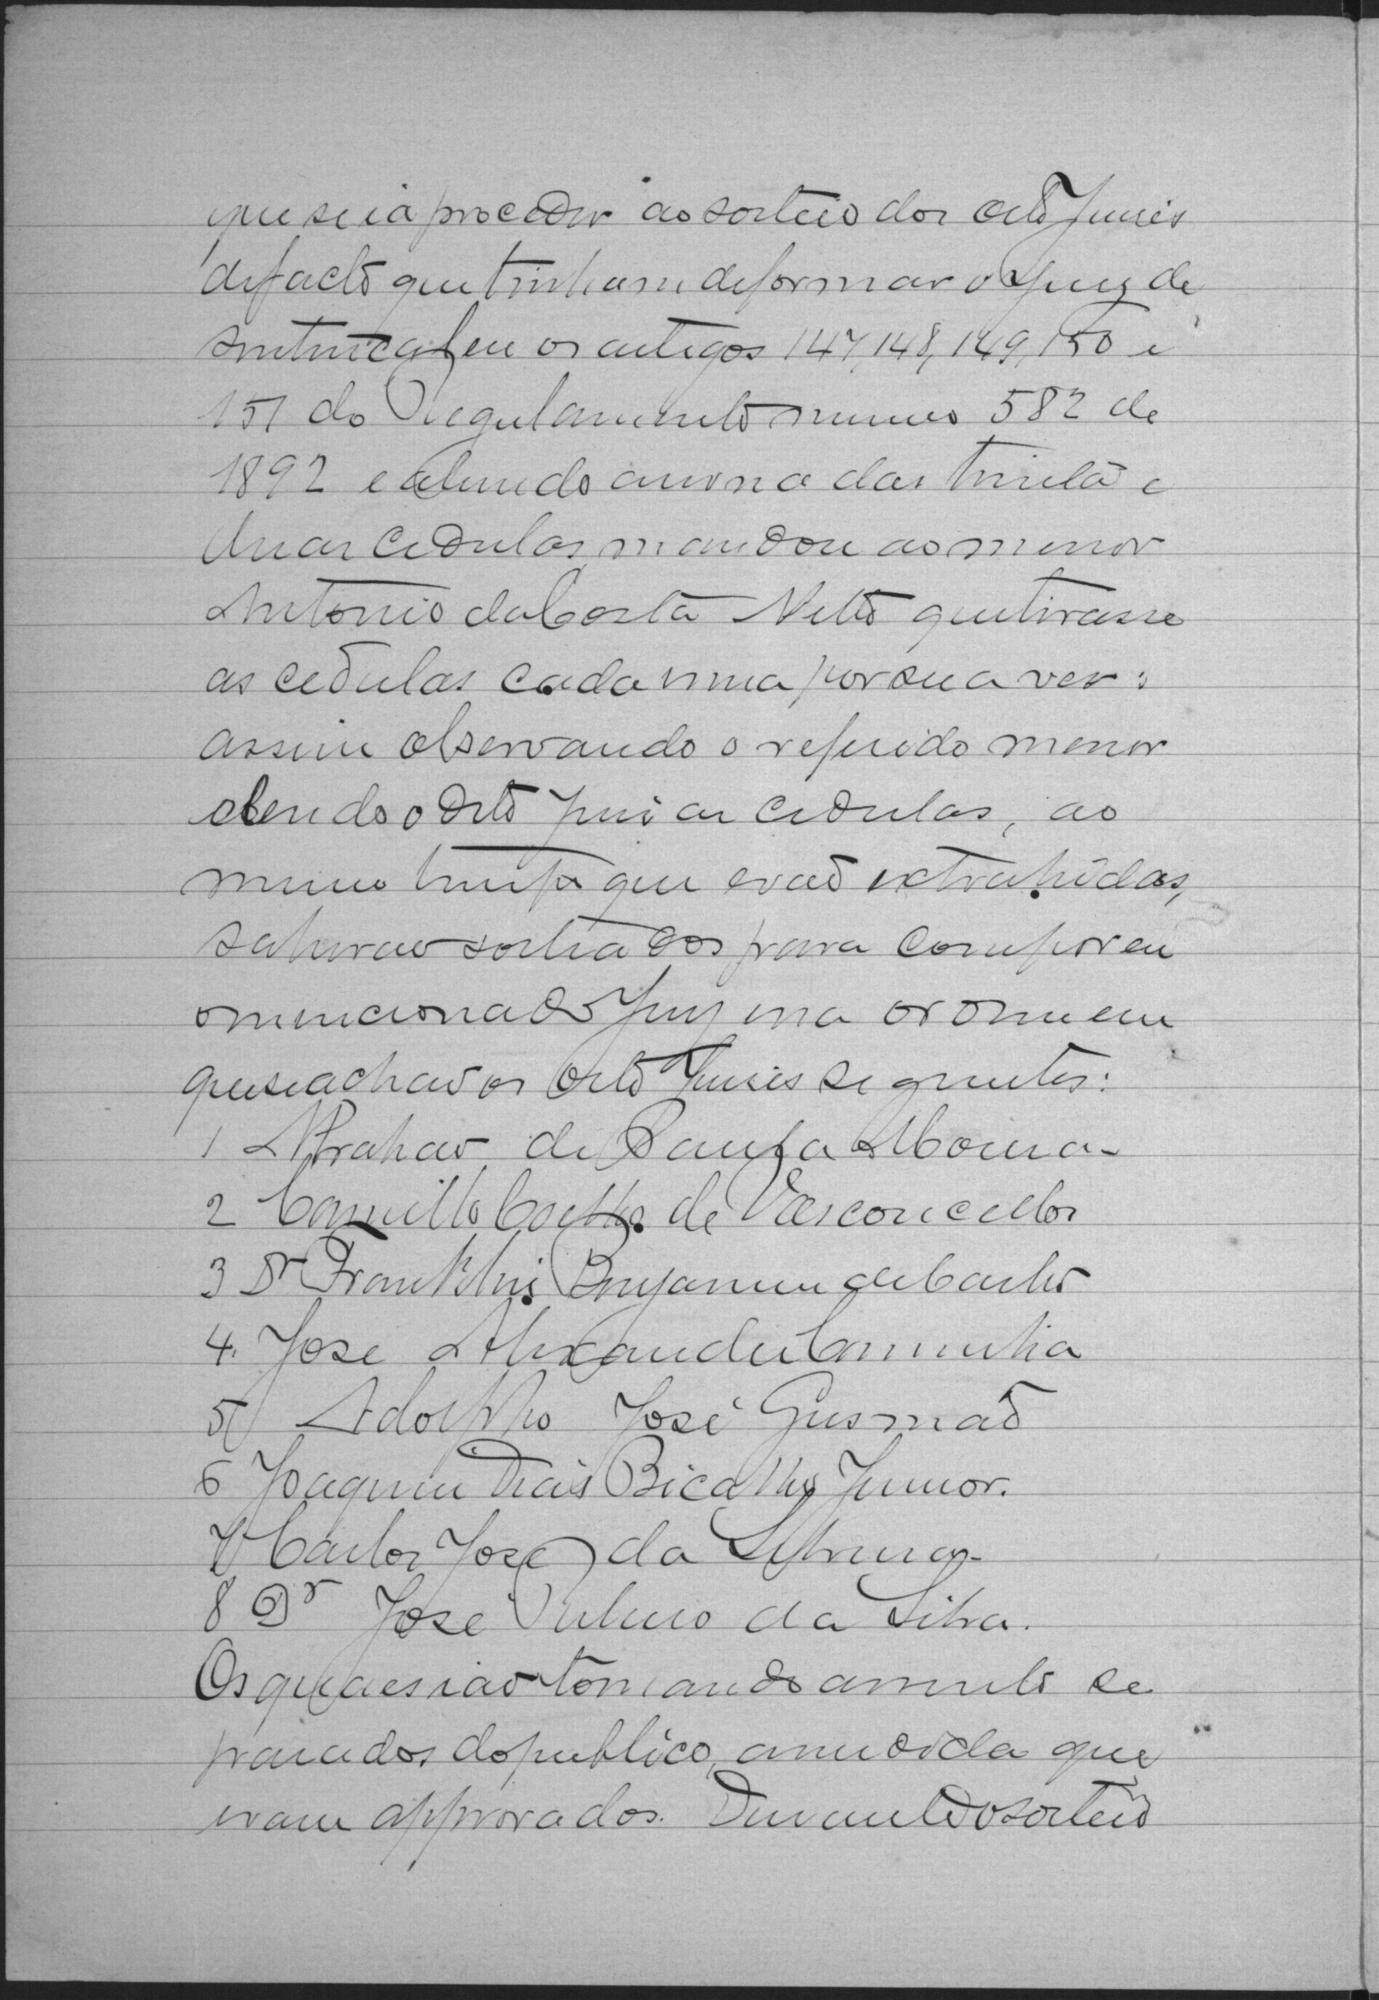 que se ia proceder ao sorteio dos oito Juises
de facto que tinham de formar o Jury de
sentença, leu os artigos 147, 148, 149, 150 e
151 do Regulamento numero 582 de
1892 e abrindo a urna das trinta e
duas cedulas, mandou ao menor
Antonio da Costa Netto que tirasse
as cedulas cada uma por sua vez:
assim observando o referido menor
e lendo o Juis as cedulas, ao
mesmo tempo que erão extrahidas,
sahirão sorteados para comporem
o mencionado Jury na ordem em
que se achão os oito Juises seguintes:
1 Abrahão de Paula Moura
2 Camillo Coelho de Vasconcellos
3 Dr Franklin Benjamim de Castro
4. José Alexandre
5 Adolpho José Gusmão
6 Joaquim Dias Bicalho Junior.
7 Carlos José da
8 Dr José da Silva.
Os quaes ião tomando assento se
parados do publico, a medida que
eram approvados. Durante o sorteio